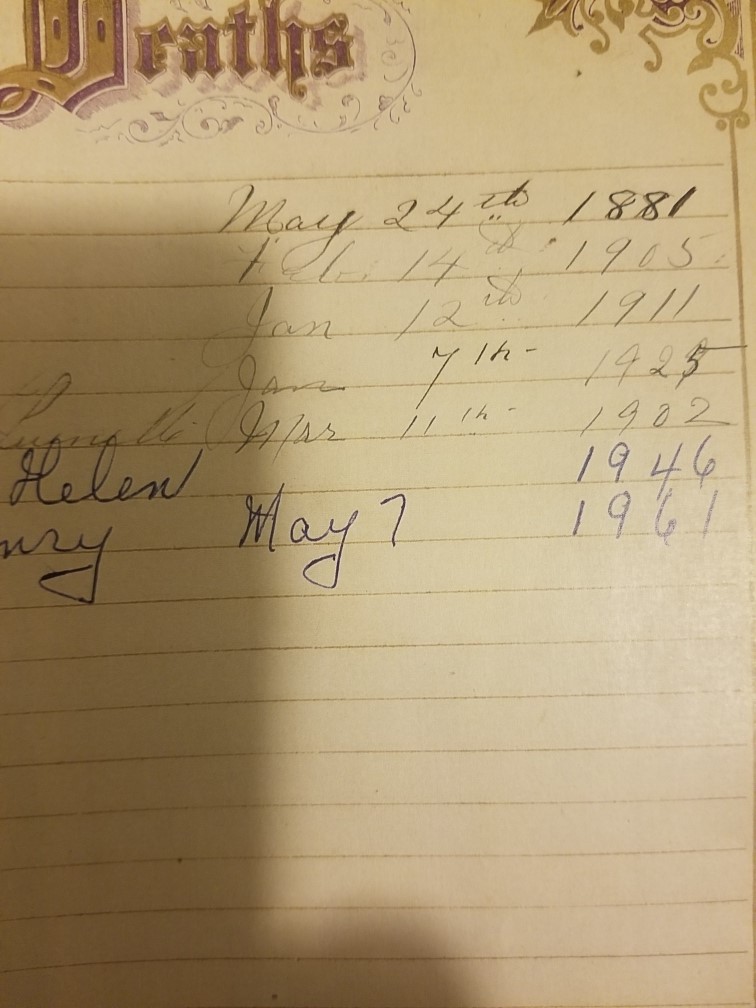 Deaths
May 24th 1881
Feb. 14th 1905
Jan 12th 1911
Jan 7th 1925
Mar 11th 1902
Helen 1946
nry May 7 1961